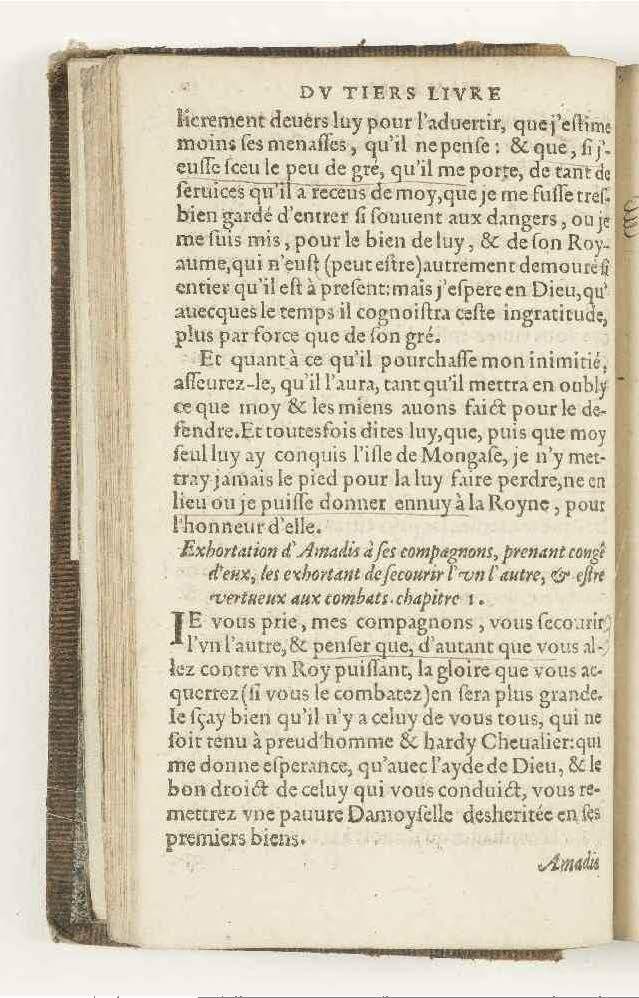 DV TIERS LIVRE
licrement deuers luy pour l'aduertir, que j'estime
moins ses menasses, qu'il ne pense: & que, si j'-
eusse sceu le peu de gré, qu'il me porte, de tant de
seruices qu'il a receus de moy, que je me fusse tres-
bien gardé d'entrer si souuent aux dangers, ou je
me suis mis, pour le bien de luy, & de son Roy-
aume, qui n'eust (peut estre) autrement demouré si
entier qu'il est à present: mais j'espere en Dieu, qu'
auecques le temps il cognoistra ceste ingratitude,
plus par force que de son gré.
Et quant à ce qu'il pourchasse mon inimitié,
asseurez-le, qu'il l'aura, tant qu'il mettra en oubly
ce que moy & les miens auons faict pour le de-
fendre. Et toutesfois dites luy, que, puis que moy
seul luy ay conquis l'isle de Mongase, je n'y met-
tray jamais le pied pour la luy faire perdre, ne en
lieu ou je puisse donner ennuy à la Royne, pour
l'honneur d'elle.
Exhortation d'Amadis à ses compagnons, prenant congé
d'eux, les exhortant de secourir l'vn l'autre, & estre
vertueux aux combats. chapitre 1.
IE vous prie, mes compagnons, vous secourir
l'vn l'autre, & penser que, d'autant que vous al-
lez contre vn Roy puissant, la gloire que vous ac-
querrez (si vous le combatez) en sera plus grande.
Ie sçay bien qu'il n'y a celuy de vous tous, qui ne
soit tenu à preud'homme & hardy Cheualier: qui
me donne esperance, qu'auec l'ayde de Dieu, & le
bon droict de celuy qui vous conduict, vous re-
mettrez vne pauure Damoyselle desheritée en ses
premiers biens.
Amadis